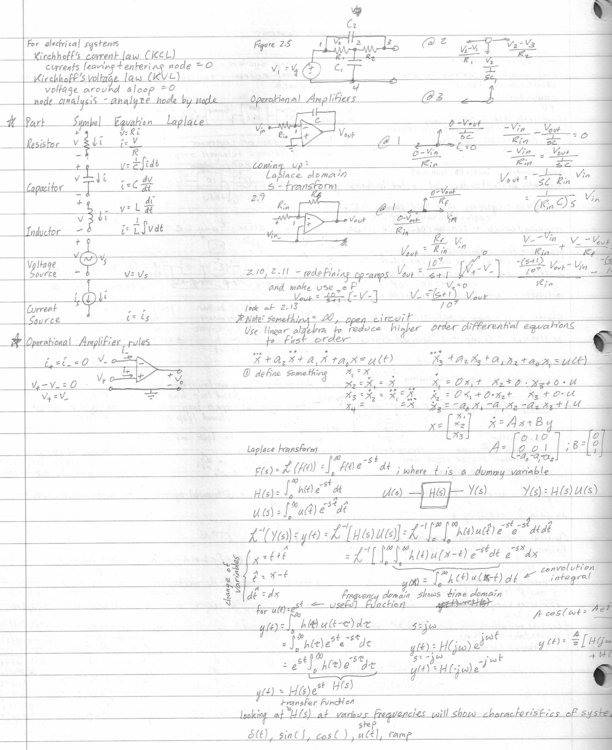 For electrical systems
Kirchhoff's current law (KCL)
currents leaving + entering node = 0
Kirchhoff's voltage law (KVL)
voltage around a loop = 0
node analysis - analyze node by node
Part Symbol Equation Laplace
Resistor
v = Ri
i = V/R
Capacitor
v = 1/C ∫ i dt
i = C dv/dt
Inductor
v = L di/dt
i = 1/L ∫ v dt
Voltage Source
v = vs
Current Source
i = is
Operational Amplifier rules
i+ = i- = 0
V+ - V- = 0
V+ = V-
Figure 2.5
C2
1 2 3
R1 R2
C1
4
@ 2
V2-V1
R1
V2-V3
R2
V2
1/SC1
@ 3
Operational Amplifiers
Vin
Rin
C
Vout
@ 1
0-Vin
Rin
0-Vout
1/SC
-Vin/Rin - Vout/(1/SC) = 0
-Vin/Rin = Vout/(1/SC)
Vout = -1/(SC Rin) Vin
= 1/((Rin C)s) Vin
coming up:
Laplace domain
s-transform
2.9
Rin
Rf
Vin
Vout
@ 1
0-Vout
Rf
Vout = Rf/Rin Vin
2.10, 2.11 - redefining op-amps
and make use of
Vout = 10^7/(s+1) [V+ - V-]
Vout = 10^7/(s+1) [-V-]
V- = -(s+1)/10^7 Vout
look at 2.13
*Note: something = ∞, open circuit
Use linear algebra to reduce higher order differential equations
to first order
x⃛ + a2ẍ + a1ẋ + a0x = u(t)
ẋ3 + a2x3 + a1x2 + a0x1 = u(t)
① define something
x1 = x
x2 = ẋ1 = ẋ
ẋ1 = 0x1 + x2 + 0·x3 + 0·u
x3 = ẋ2 = ẍ1 = ẍ
ẋ2 = 0x1 + 0·x2 + x3 + 0·u
ẋ3 = -a0x1 - a1x2 - a2x3 + 1u
x = [x1 x2 x3]
ẋ = Ax + Bu
A = [0 1 0
0 0 1
-a0 -a1 -a2] ; B = [0 0 1]
Laplace transform
F(s) = ℒ(f(t)) = ∫0^∞ f(t)e^-st dt ; where t is a dummy variable
H(s) = ∫0^∞ h(t)e^-st dt
U(s) → H(s) → Y(s)
Y(s) = H(s)U(s)
U(s) = ∫0^∞ u(t̂)e^-st̂ dt̂
ℒ^-1(Y(s)) = y(t) = ℒ^-1[H(s)U(s)] = ℒ^-1 ∫0^∞ ∫0^∞ h(t)u(t̂)e^-st e^-st̂ dt dt̂
change of variables
x = t + t̂
t̂ = x - t
dt̂ = dx
= ℒ^-1[∫0^∞ ∫0^∞ h(t)u(x-t)e^-st dt e^-sx dx
y(x) = ∫0^∞ h(t)u(x-t)dt ← convolution integral
frequency domain shows time domain
for u(t) = e^st ← useful function
y(t) = ∫0^∞ h(τ)u(t-τ)dτ
s = jω
A cos(ωt = Ae
= ∫0^∞ h(τ)e^st e^-sτ dτ
y(t) = H(jω)e^jωt
s = -jω
y(t) = A/2 [H(jω
= e^st ∫0^∞ h(τ)e^-sτ dτ
y(t) = H(-jω)e^-jωt
H(s)
y(t) = H(s)e^st
transfer function
looking at H(s) at various frequencies will show characteristics of syste
step
δ(t), sin( ), cos( ), u(t), ramp